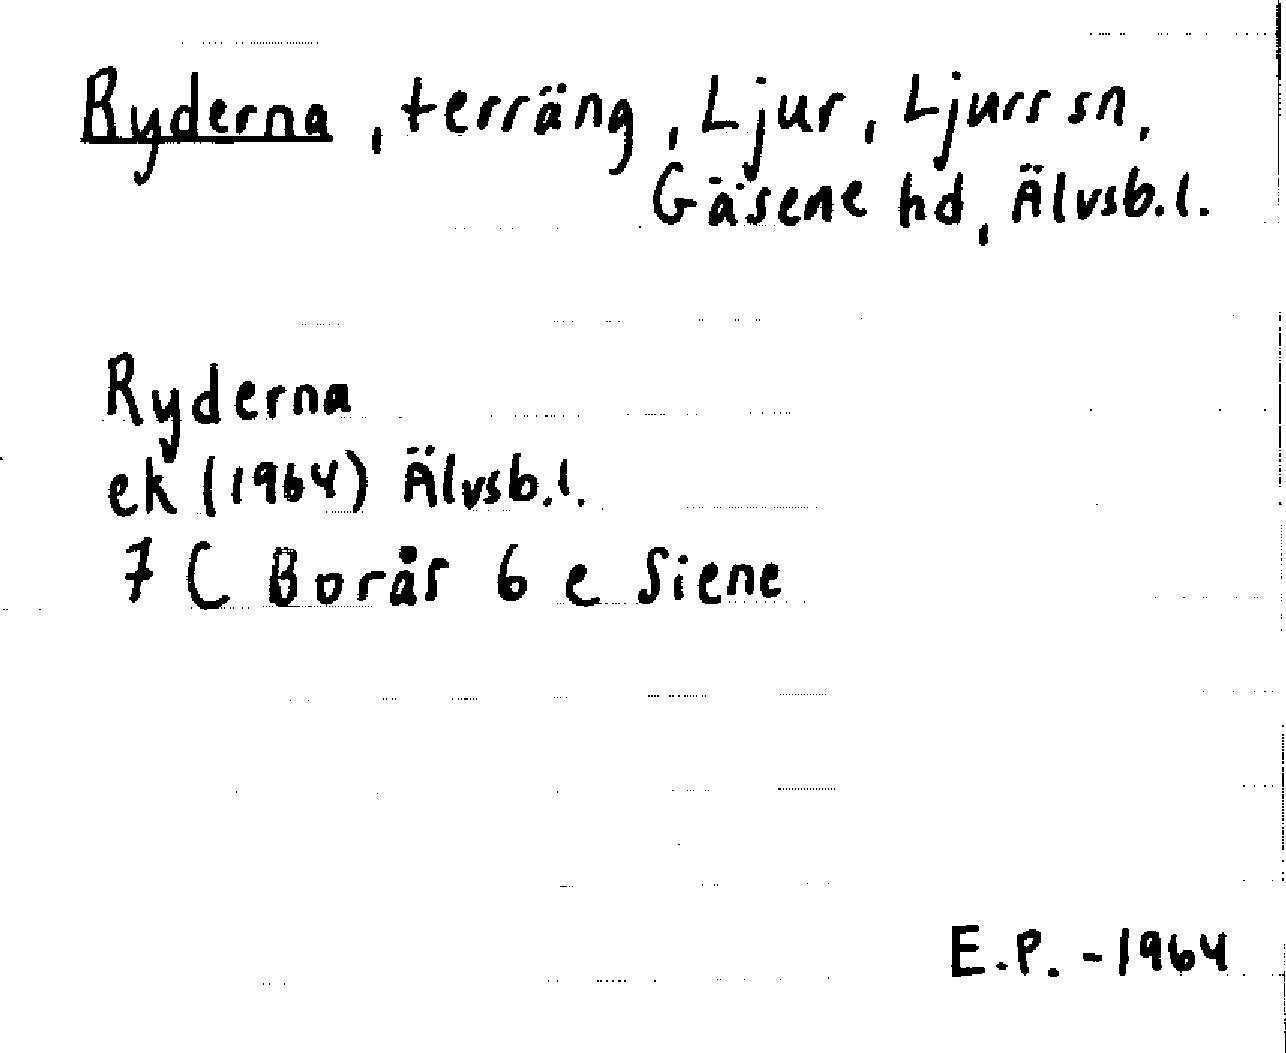 Ryderna, terräng, Ljur, Ljurs sn,
Gäsene hd, Älvsb.l.
Ryderna
ek (1964) Älvsb.l.
7 C Borås 6 e Siene
E.P. - 1964